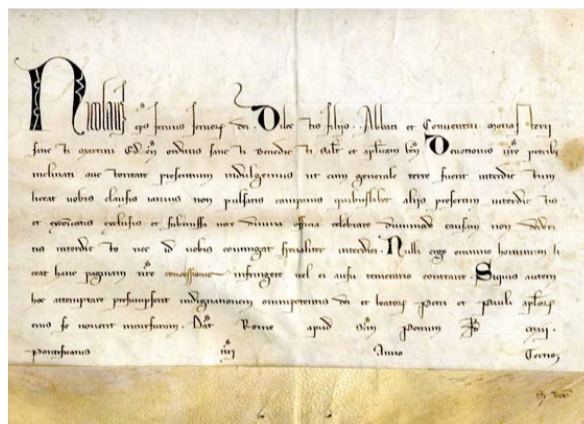 Nicolaus eps servus servorz dei. Dilectis filijs. Abbati et Conventui monasterij
sancti Martini ordinis sancti Benedicti salt et aplicam ben. Devotionis vre precibus
inclinati auctoritate presentium indulgemus ut cum generale terre fuerit interdictum
liceat vobis clausis ianuis non pulsatis campanis quibuslibet alijs presertim interdictis
et excoicatis exclusis et submissa voce divina officia celebrare dummodo causam non dederitis
interdicto nec id vobis contingat specialiter interdici. Nulli ergo omnino hominum li
ceat hanc paginam nre concessionis infringere vel ei ausu temerario contraire. Siquis autem
hoc attemptare presumpserit indignationem omnipotentis dei et beatorz Petri et Pauli aplorz
eius se noverit incursurum. Dat Rome apud Petrum
Pontificatus nri Anno Tertio